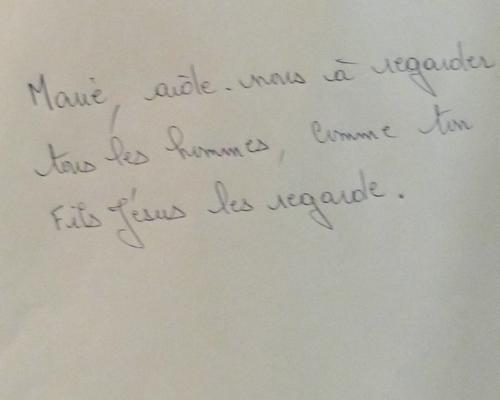 Marie, aide-nous à regarder
tous les hommes, comme ton
Fils Jésus les regarde.